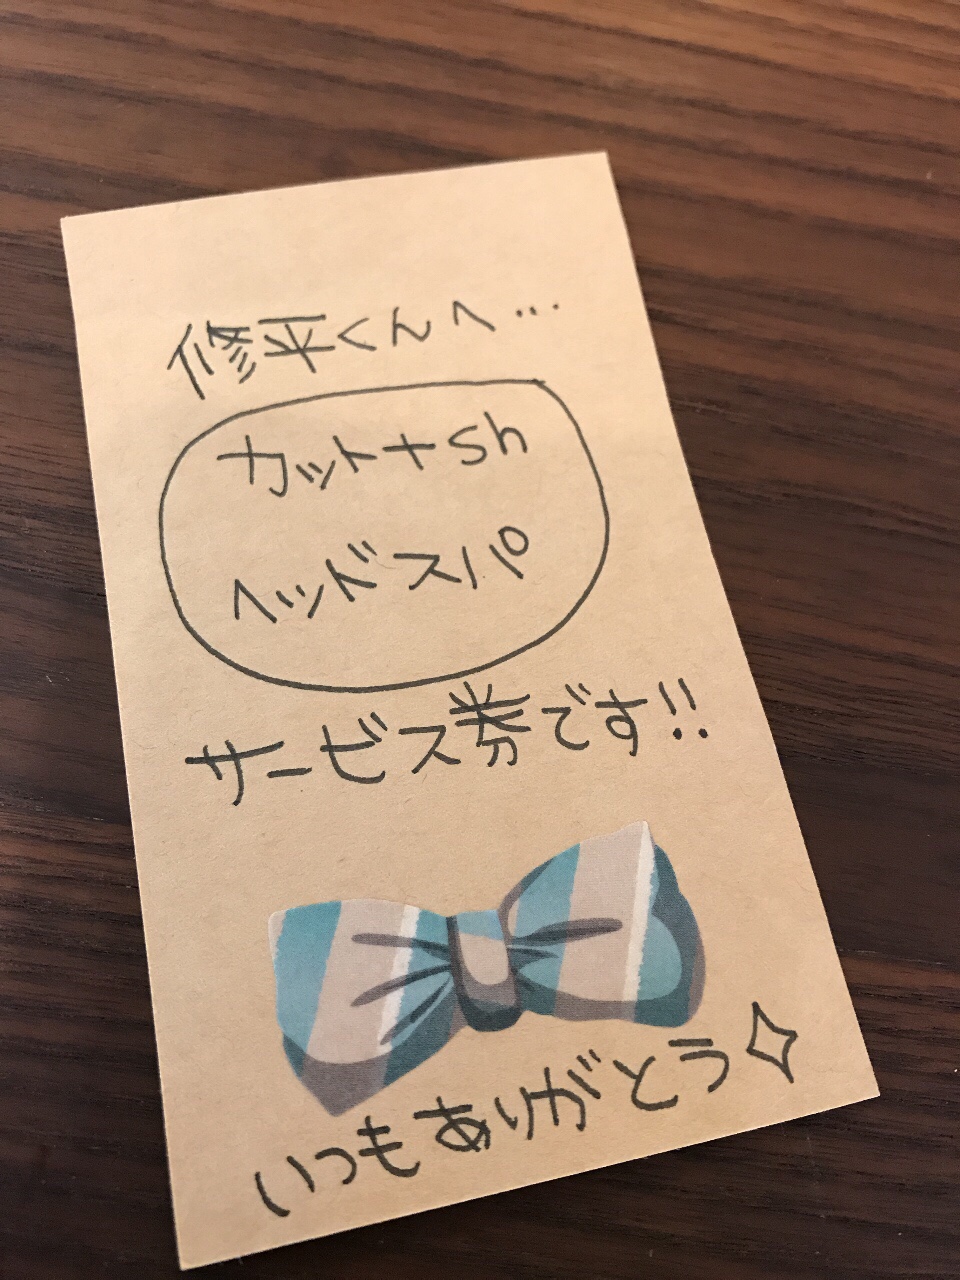 修平くんへ…
カット+sh
ヘッドスパ
サービス券です!!
いつもありがとう